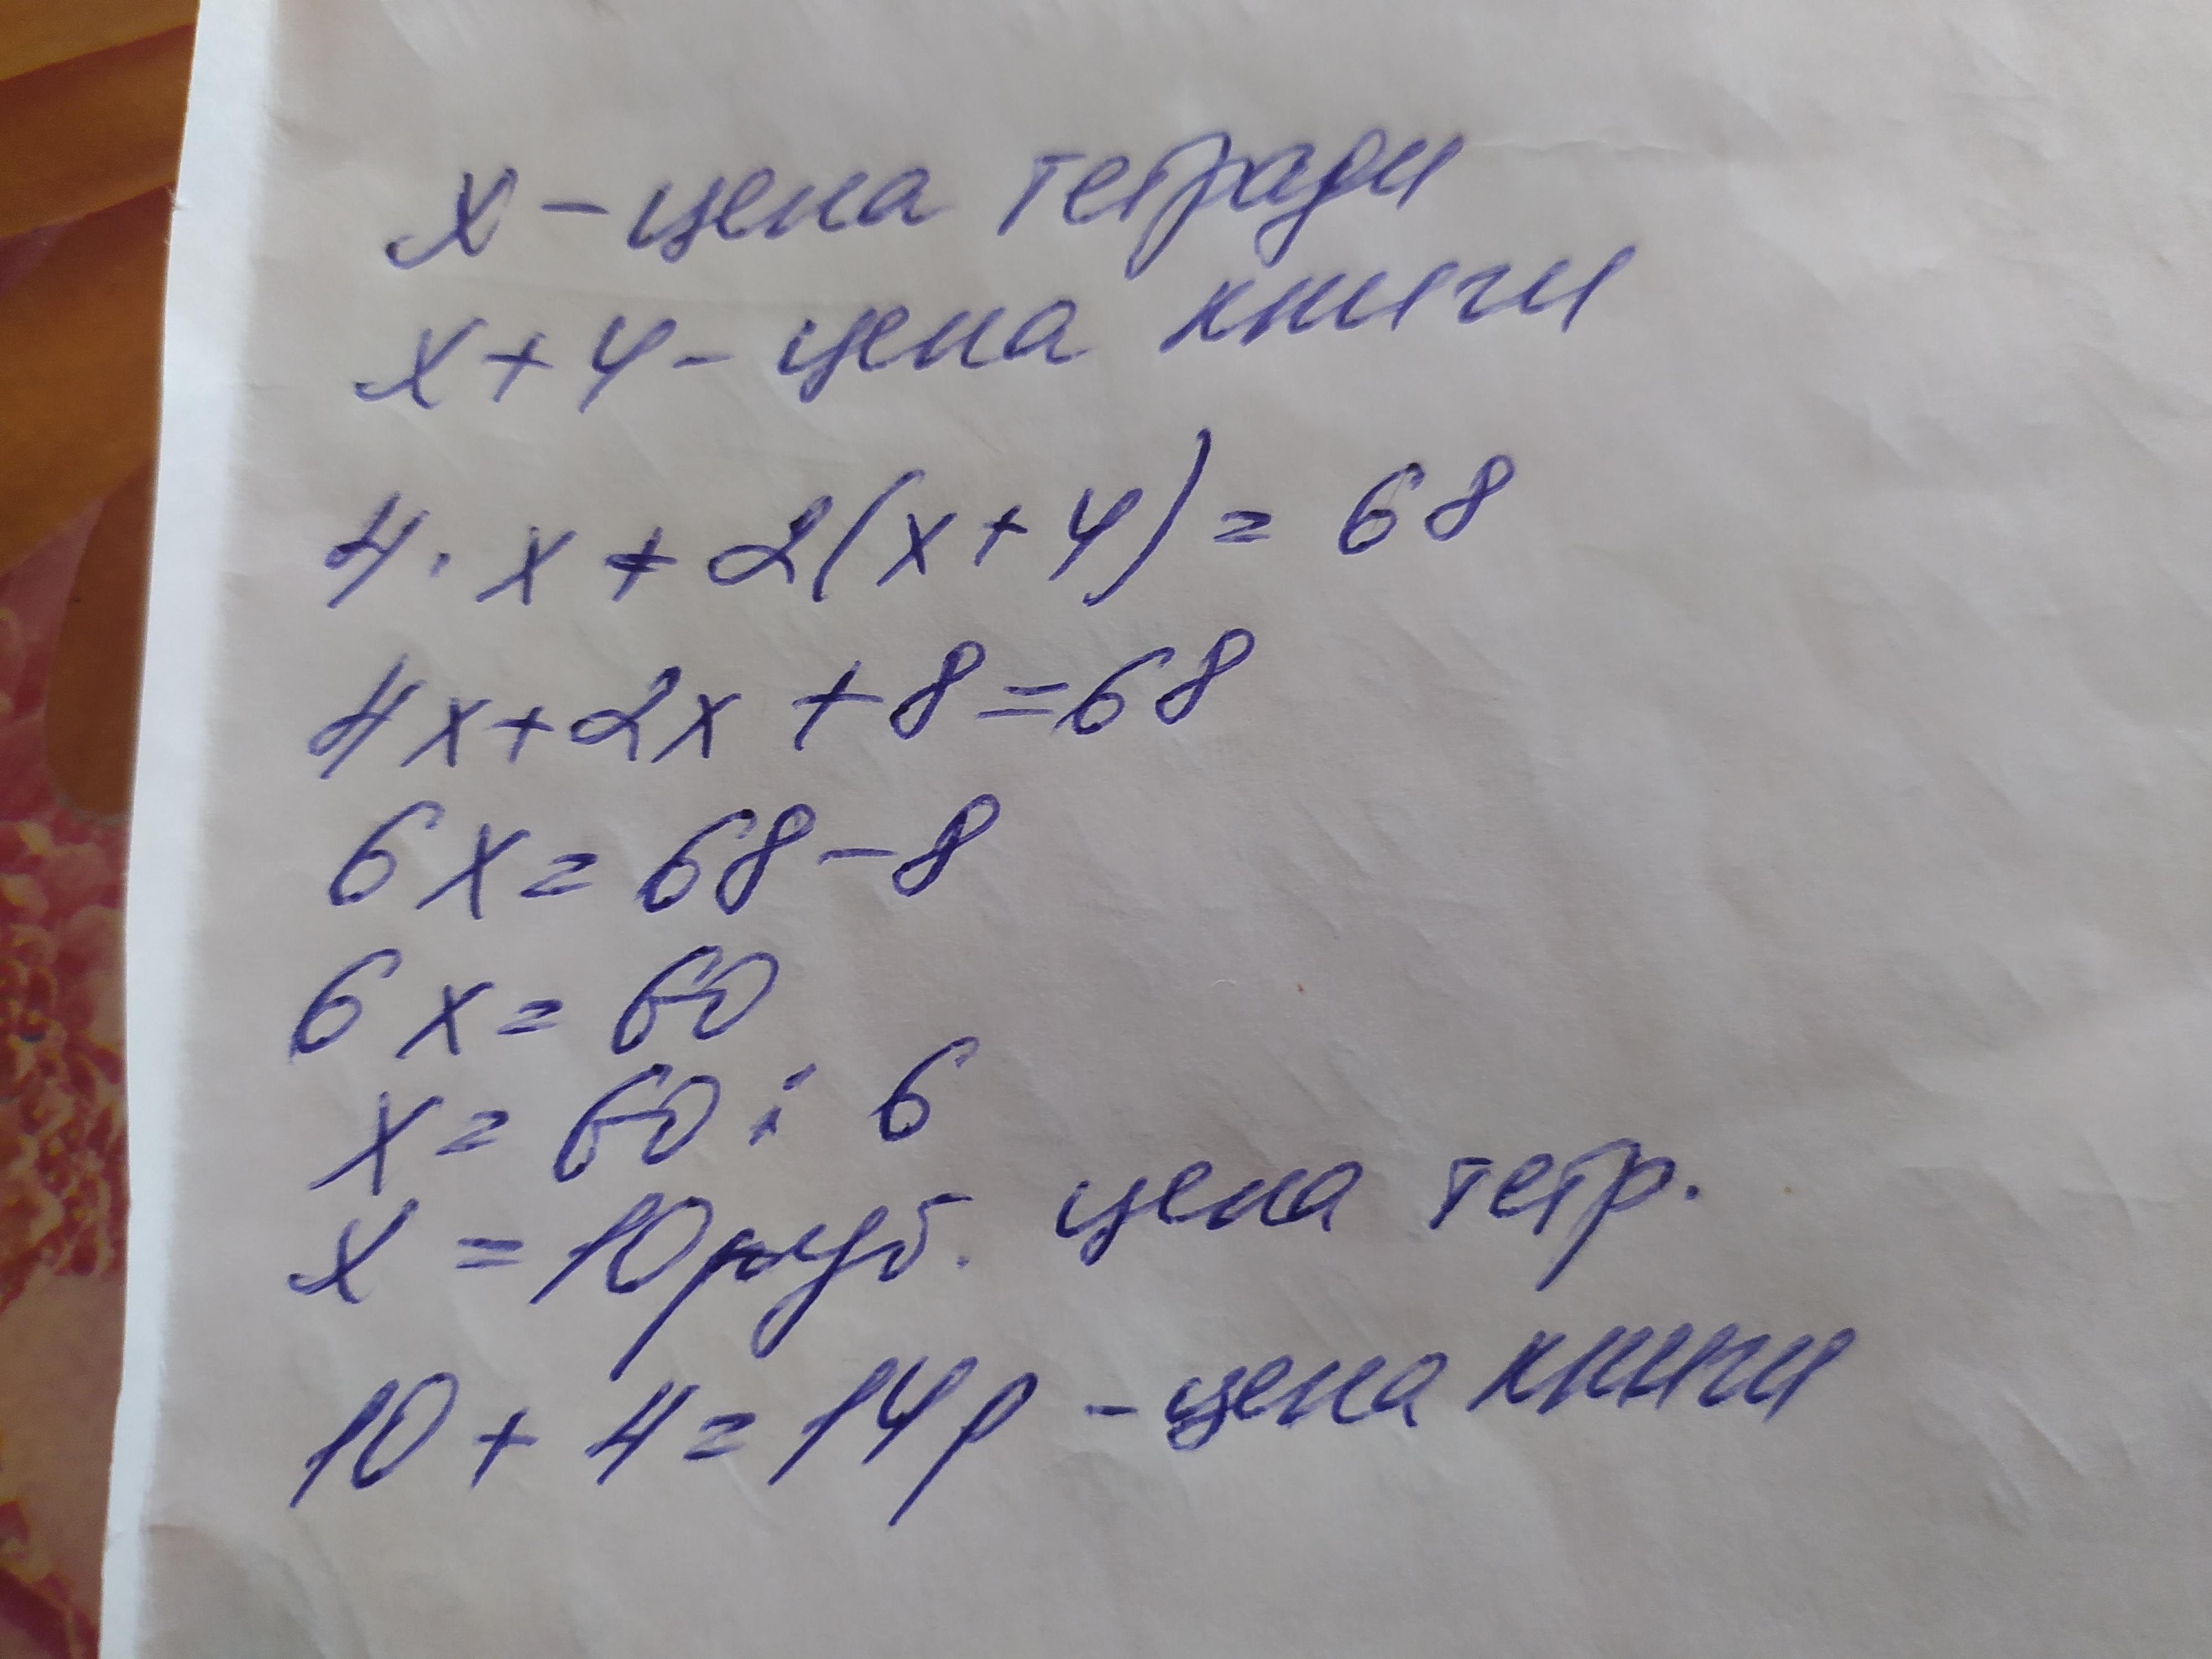 x - цена тетради
x + 4 - цена книги
4 · x + 2(x + 4) = 68
4x + 2x + 8 = 68
6x = 68 - 8
6x = 60
x = 60 : 6
x = 10 руб. цена тетр.
10 + 4 = 14 р - цена книги